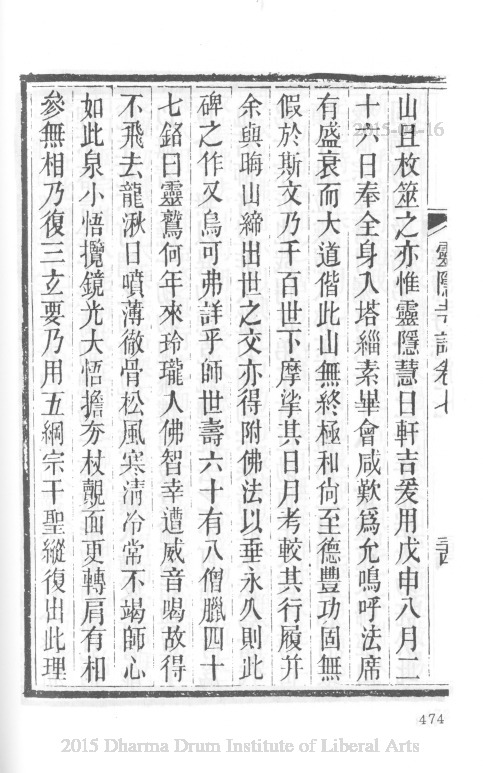 靈隱寺誌卷七
山且枚筮之亦惟靈隱慧日軒吉爰用戊申八月二
十六日奉全身入塔緇素畢會咸歎爲允嗚呼法席
有盛衰而大道偕此山無終極和尙至德豐功固無
假於斯文乃千百世下摩挲其日月考較其行履并
余與晦山締出世之交亦得附佛法以垂永久則此
碑之作又烏可弗詳乎師世壽六十有八僧臘四十
七銘曰靈鷲何年來玲瓏人佛智幸遭威音喝故得
不飛去龍湫日噴薄徹骨松風寒淸冷常不竭師心
如此泉小悟攬鏡光大悟擔夯杖覿面更轉肩有相
參無相乃復三玄要乃用五綱宗千聖縱復出此理
474
2015-04-16
2015 Dharma Drum Institute of Liberal Arts